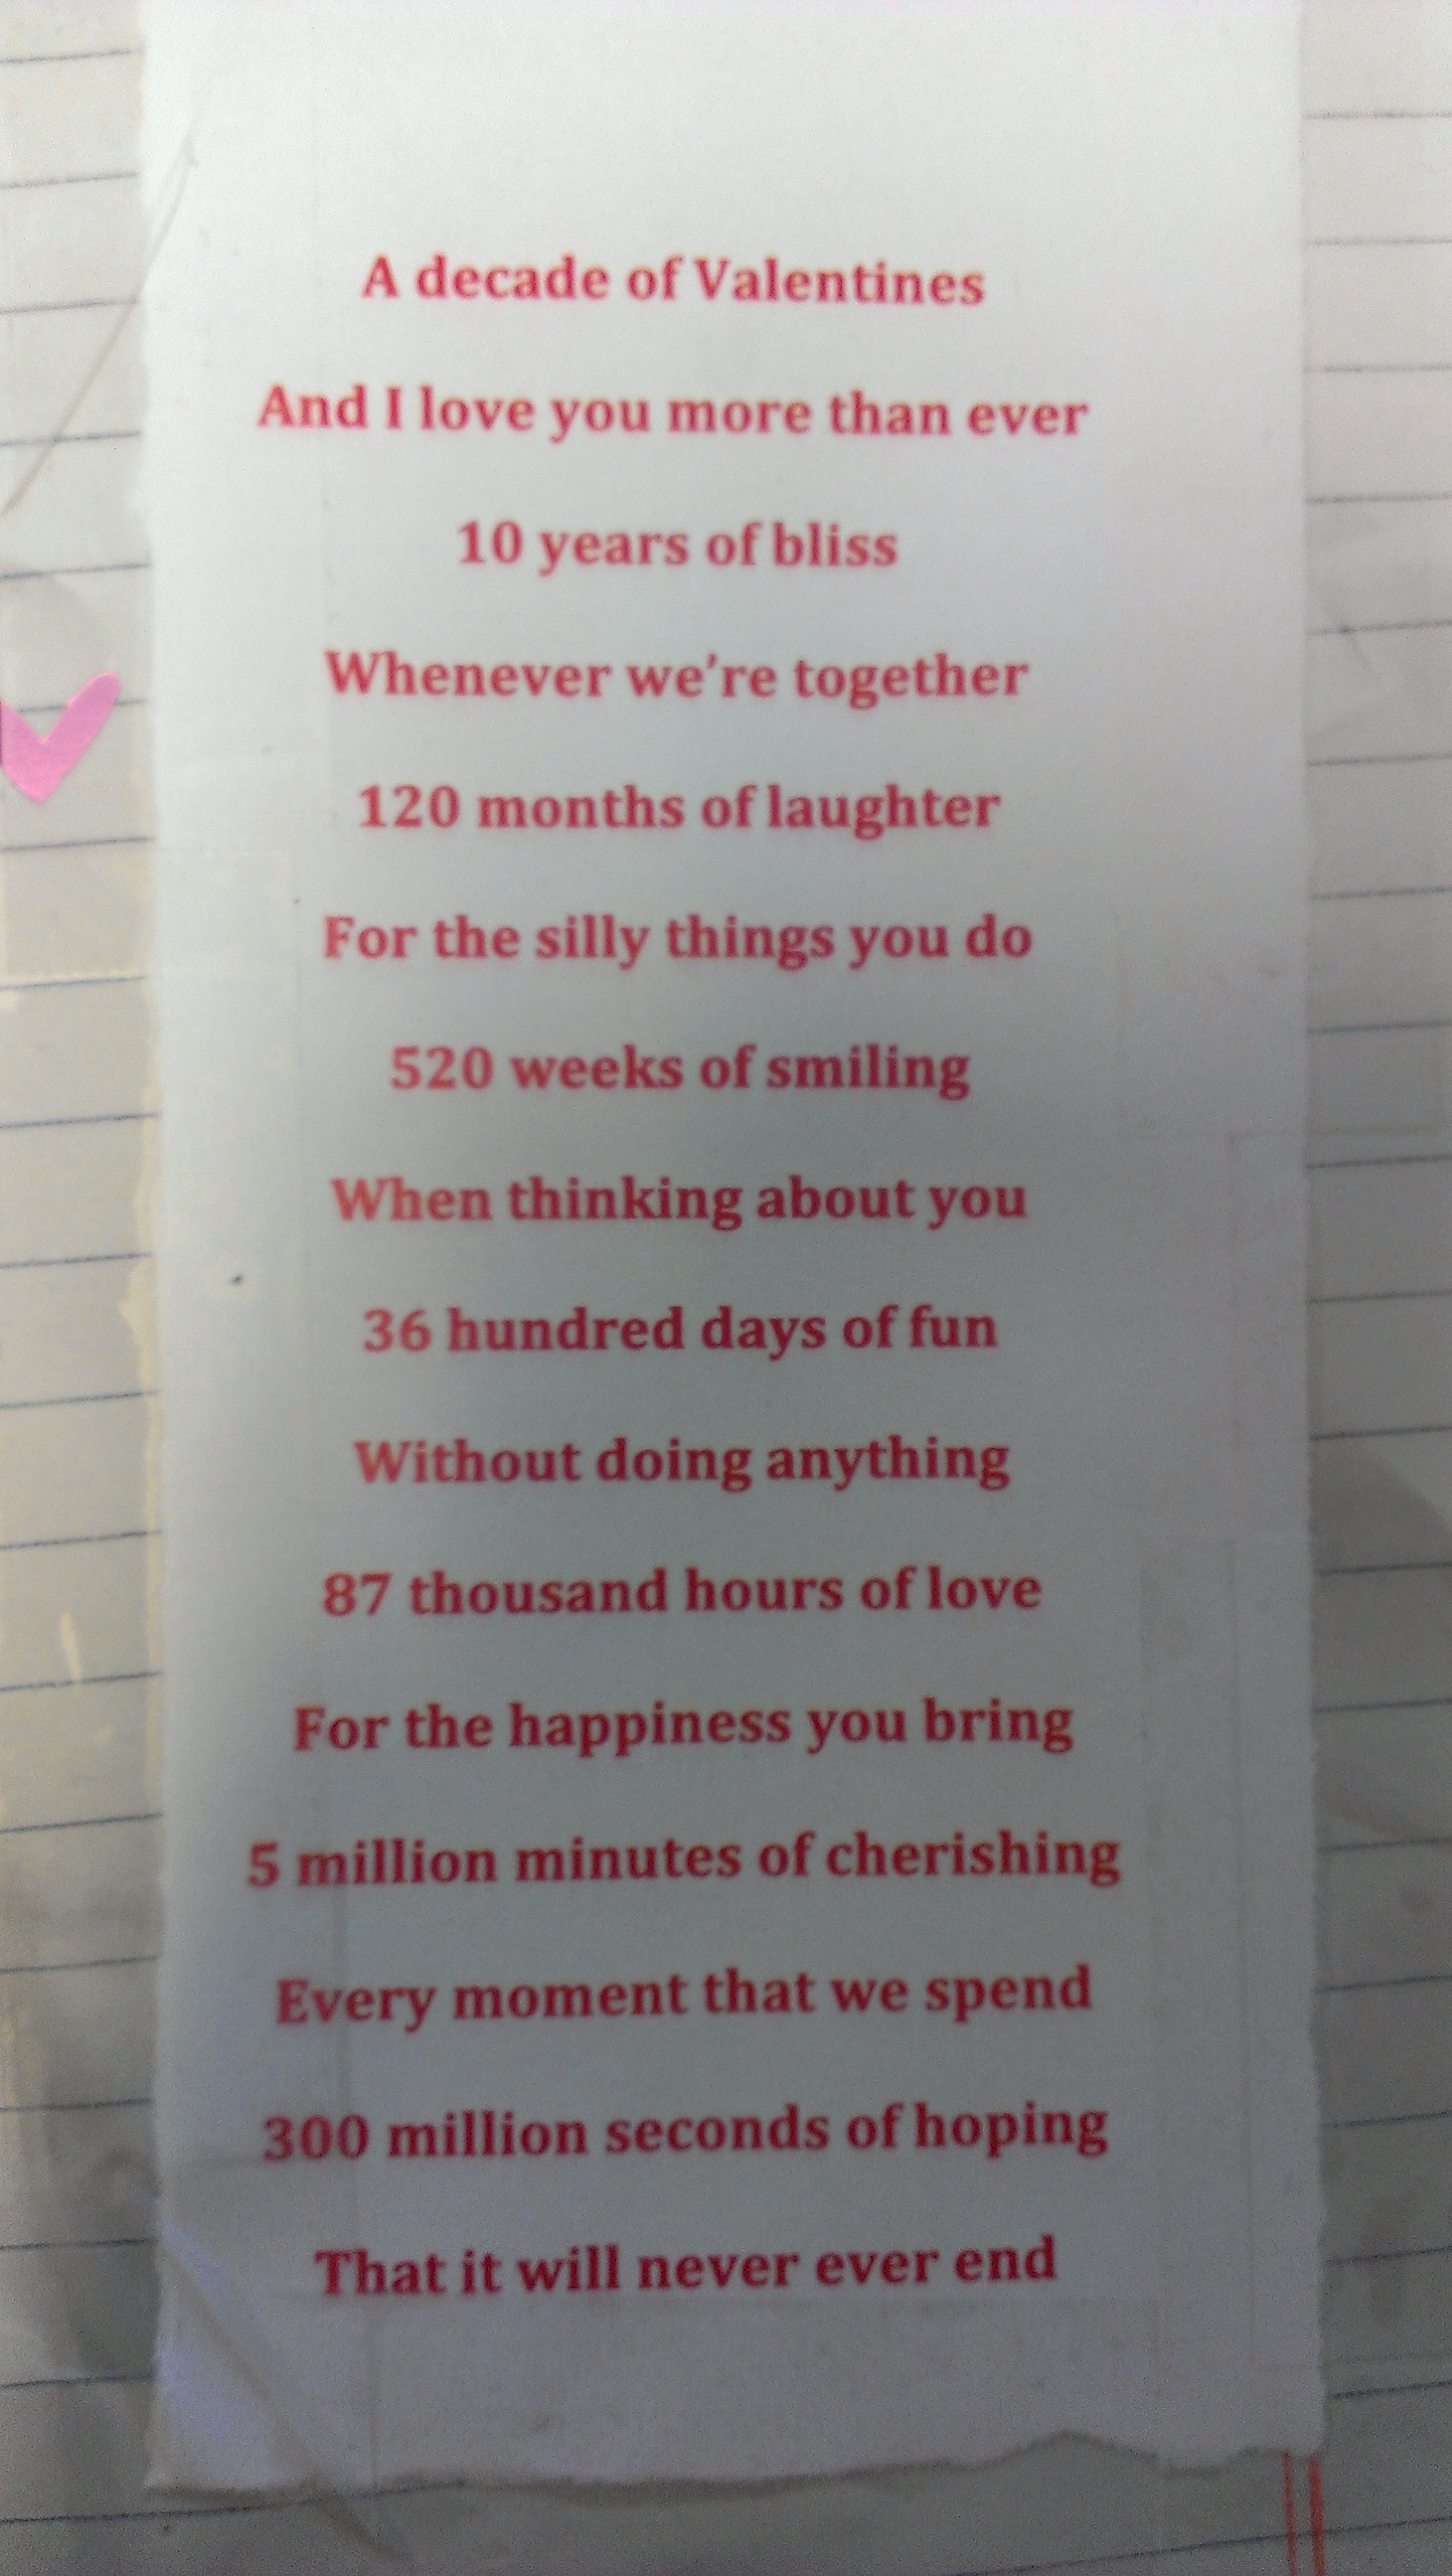 A decade of Valentines
And I love you more than ever
10 years of bliss
Whenever we're together
120 months of laughter
For the silly things you do
520 weeks of smiling
When thinking about you
36 hundred days of fun
Without doing anything
87 thousand hours of love
For the happiness you bring
5 million minutes of cherishing
Every moment that we spend
300 million seconds of hoping
That it will never ever end